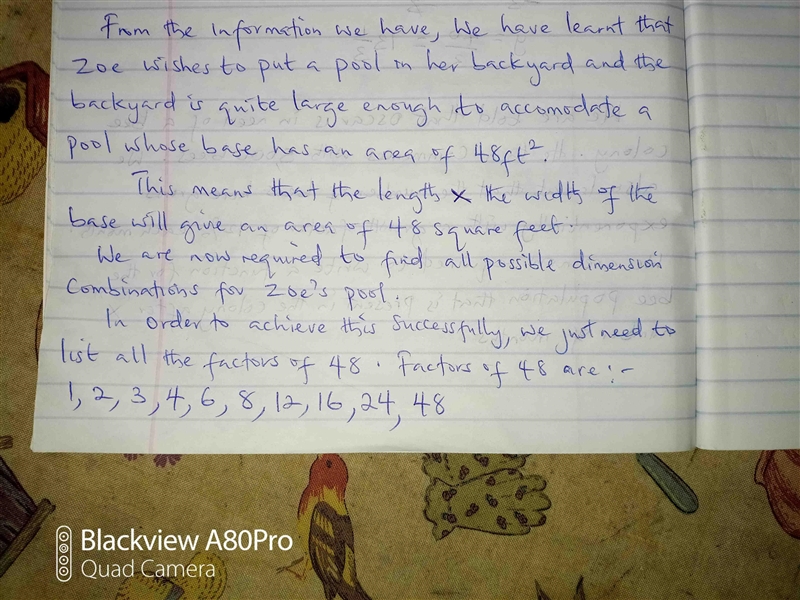 From the Information we have, We have learnt that
Zoe wishes to put a pool in her backyard and the
backyard is quite large enough to accomodate a
pool whose base has an area of 48ft².
This means that the length × the width of the
base will give an area of 48 square feet.
We are now required to find all possible dimension
Combinations for Zoe's pool.
In order to achieve this Successfully, we just need to
list all the factors of 48. Factors of 48 are:-
1, 2, 3, 4, 6, 8, 12, 16, 24, 48
Blackview A80Pro
Quad Camera